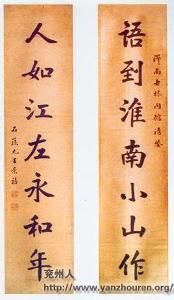 語到淮南小山作
人如江左永和年
兖州人
www.yanzhouren.org/